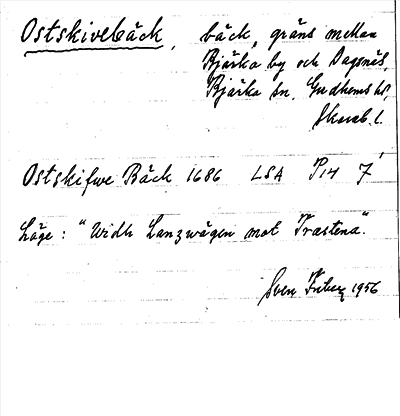 Ostskivebäck, bäck, gräns mellan
Bjärka by och Dagsnäs,
Bjärka sn. Gudhems hd,
Skarab. l.
Ostskifwe Bäck 1686 LSA P14 7'
Läge: "Widh Lanzwägen mot Trastena".
Sven 1956